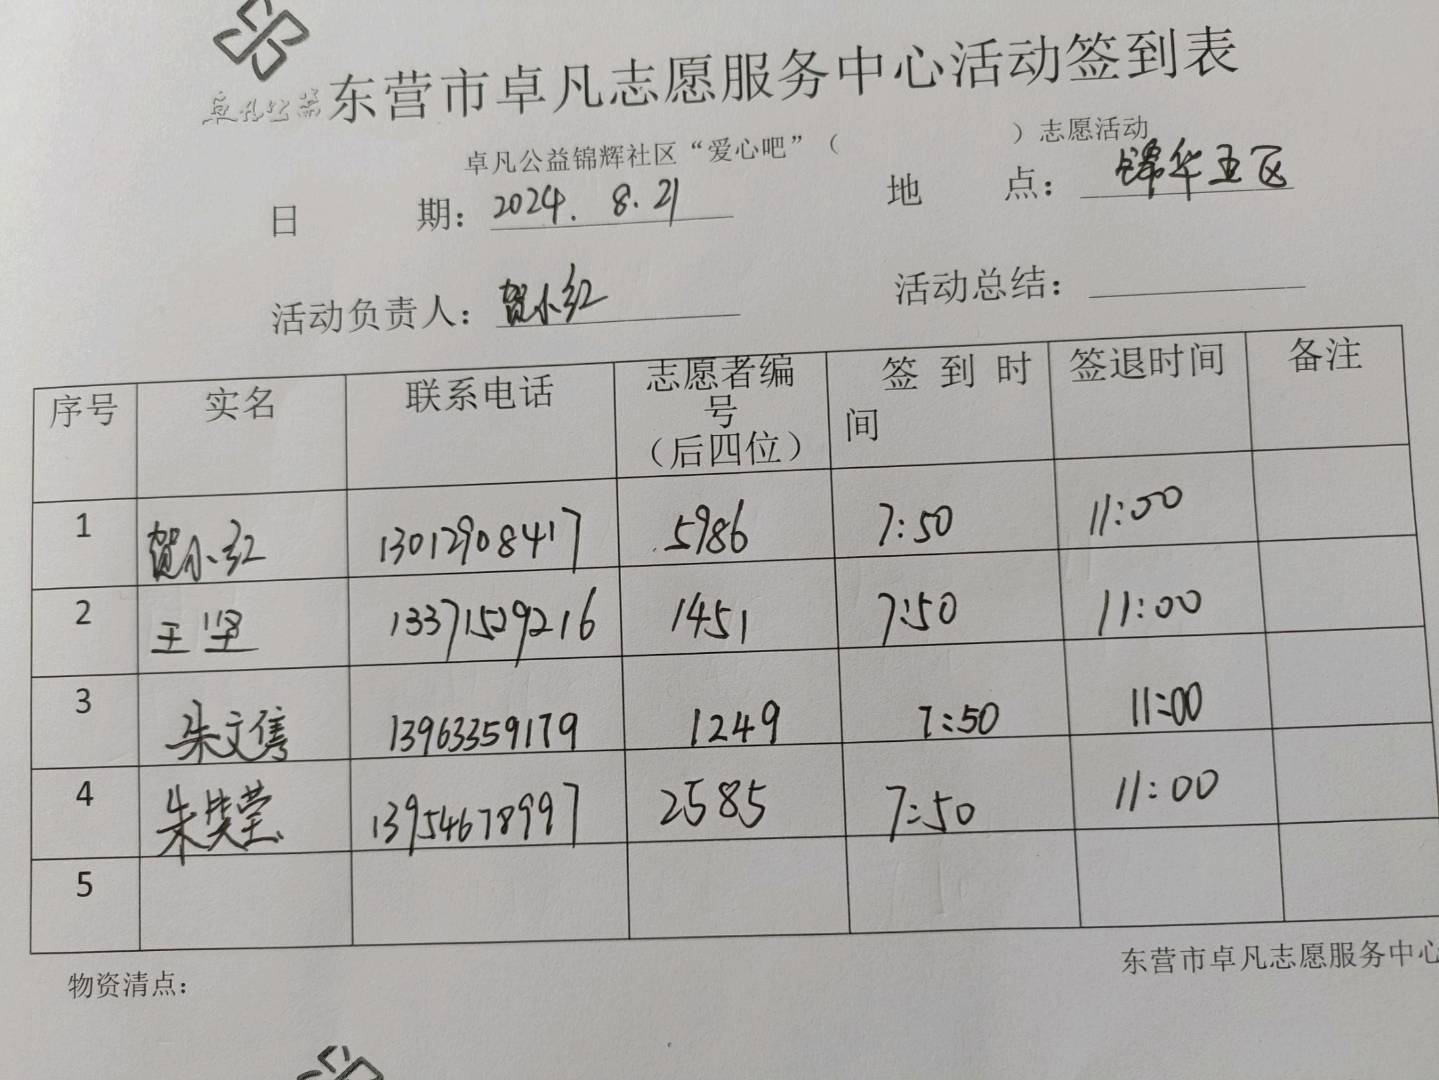 卓凡公益 东营市卓凡志愿服务中心活动签到表
卓凡公益锦辉社区“爱心吧”（ ）志愿活动
日 期：2024.8.21 地 点：锦华五区
活动负责人：贺小红 活动总结：
序号 实名 联系电话 志愿者编号（后四位） 签到时间 签退时间 备注
1 贺小红 13012908417 5986 7:50 11:00
2 王坚 13371529216 1451 7:50 11:00
3 朱文隽 13963359179 1249 7:50 11:00
4 朱 13954678997 2585 7:50 11:00
5
物资清点： 东营市卓凡志愿服务中心